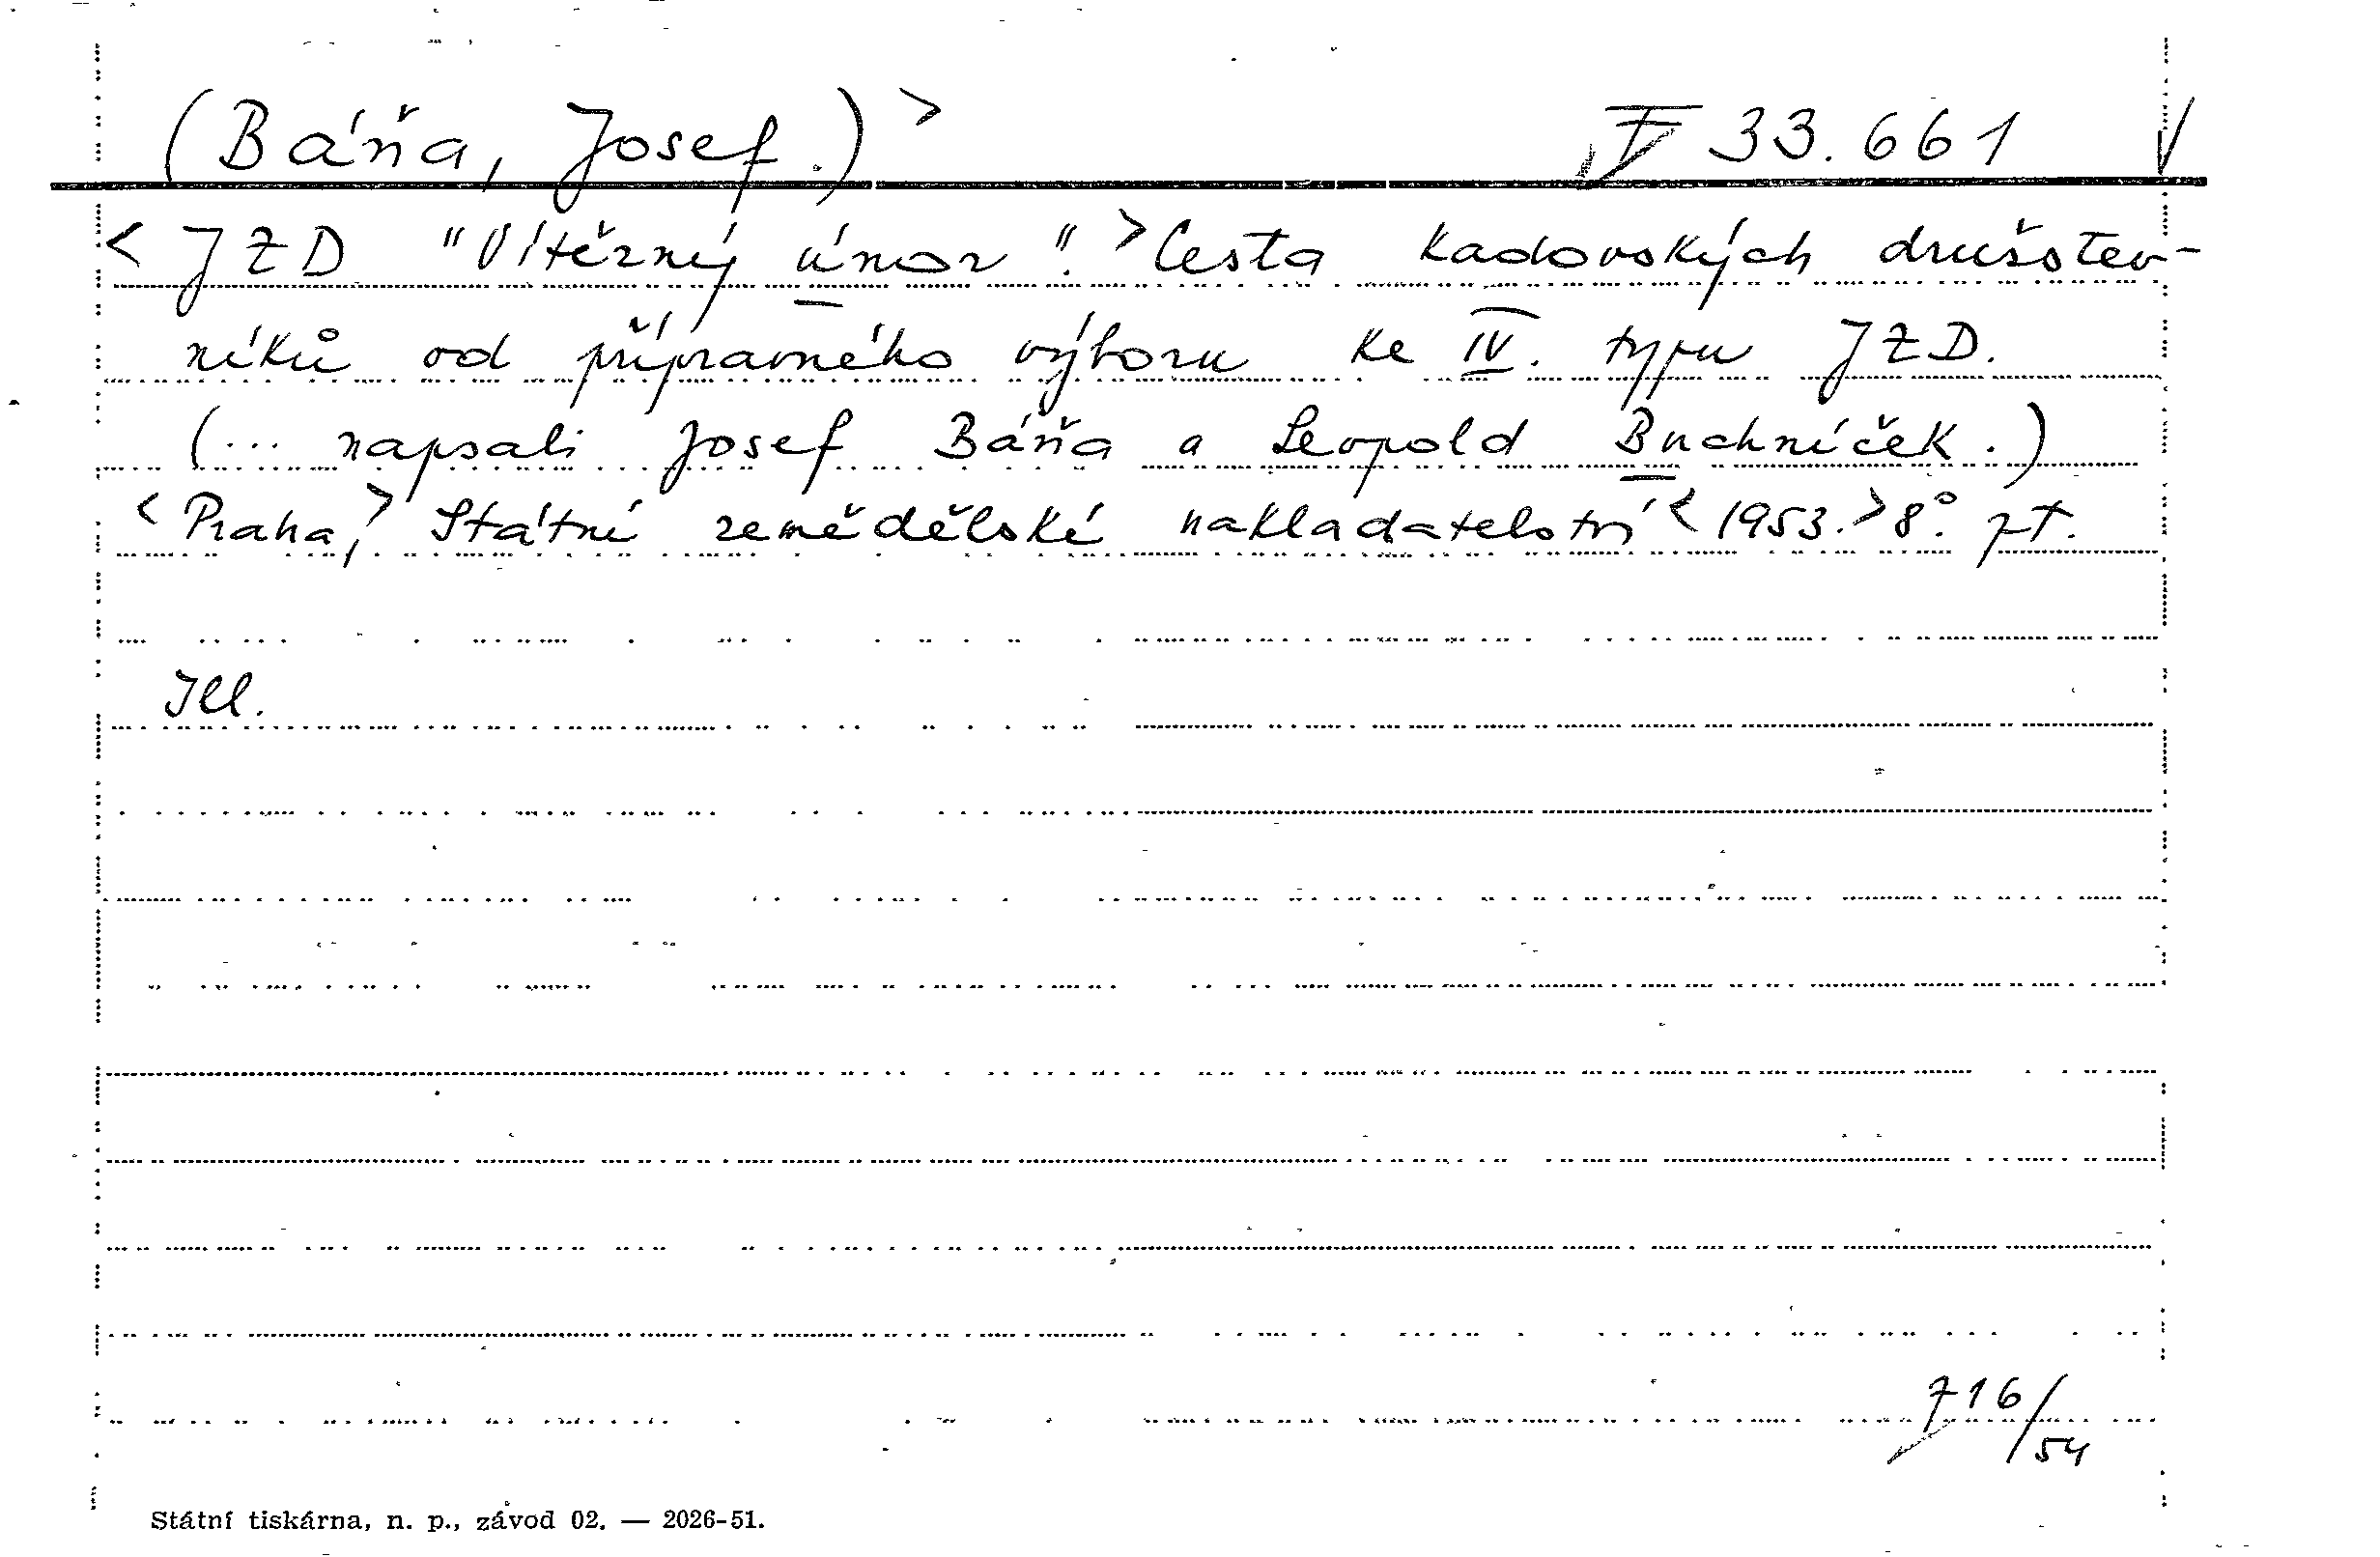 (Báňa, Josef.)> 33.661
<JZD "Vítězný únor".> Cesta kadovských družstev-
níků od přípravného výboru ke IV. typu JZD.
(... napsali Josef Báňa a Leopold Buchníček.)
<Praha,> Státní zemědělské nakladatelství <1953.> 8°. pt.
Ill.
716/54
Státní tiskárna, n. p., závod 02. — 2026-51.